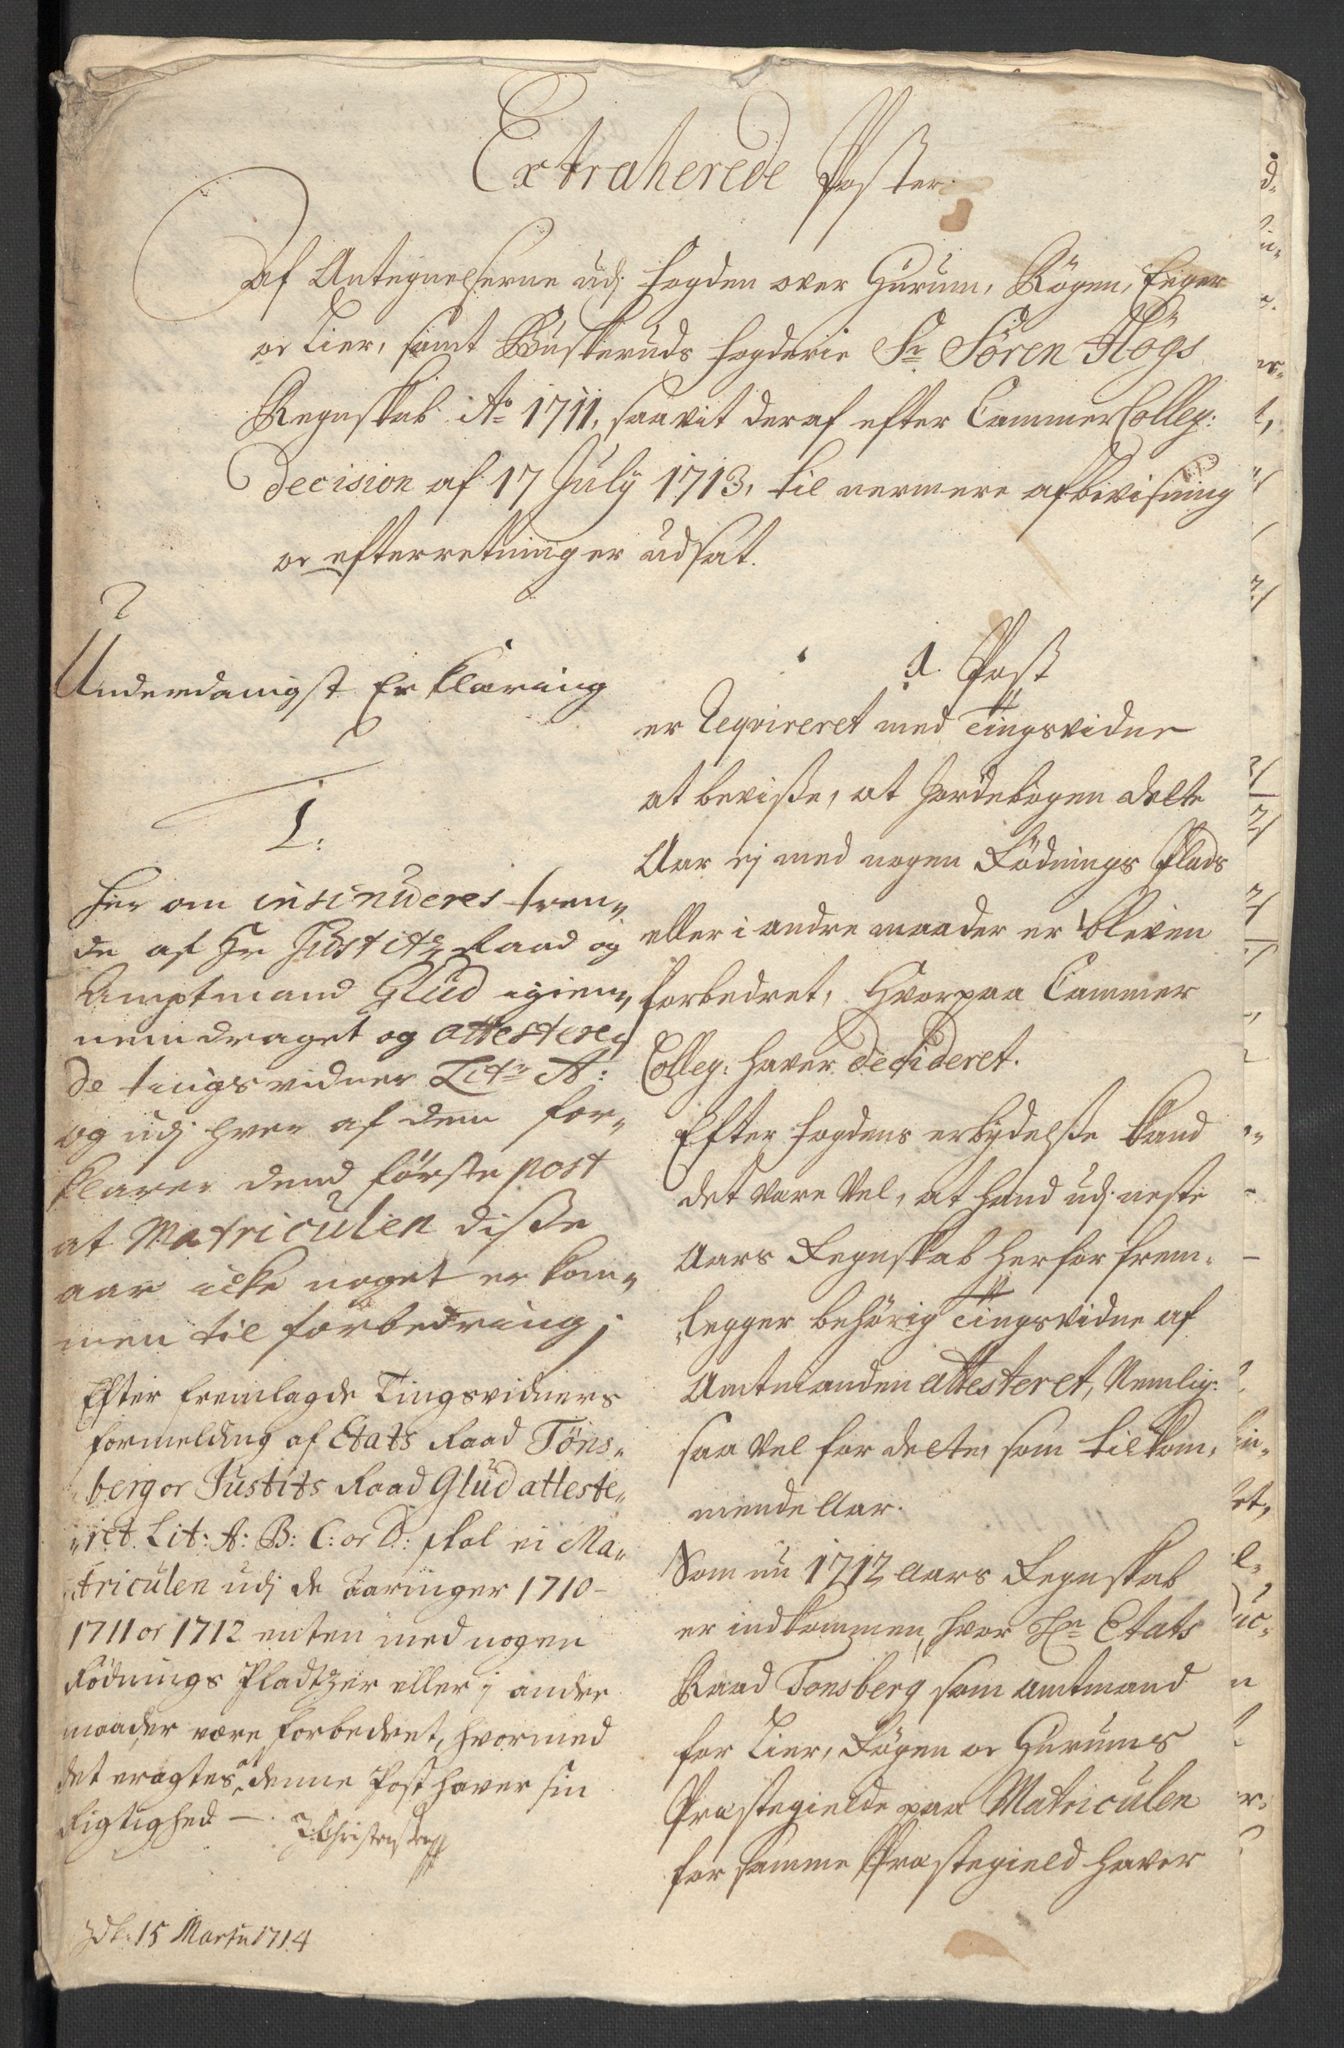 Extraherede Poster
Af Antegnelserne udj fogden over Hurum, Rögen, Eeger
oc Lier, samt Buskeruds fogderie Sr Sören Högs
Regnskab Ao 1711, saavit deraf efter Cammer Colleg:
decision af 17 July 1713, til nermere afbevisning
oc efterretninger udsat.
Underdanigst Erklæring
1:
her om insinueres tven,,
de af Hr Justitz Raad og
Amptmand Glud igien,,
nemdraget og attestere,,
de tingsvidner Litr A:
og udj hver af dem for,,
klarer dend første post
at Matriculen disse
aar icke noget er kom,,
men til forbedring;
Efter fremlagde Tingsvidners
formelding af Etats Raad Töns,,
berg oc Justits Raad Glud atteste,,
,,ret Lit: A: B: C: oc D: skal ei Ma,,
triculen udj de Aaringer 1710-
1711 oc 1712 enten med nogen
Rödnings Pladtzer eller j andre
maader være forbedret, hvormed
det eragtes at denne Post haver sin
Rigtighed —
15 Martij 1714
1. Post
er Reqvireret med Tingsvidne
at bevisse, at Jordebogen dette
Aar ej med nogen Rödnings Plads
eller i andre maader er bleven
forbedret, Hvorpaa Cammer
Colleg: haver decideret.
Efter fogdens erbydelsse kand
det være vel, at hand udj neste
Aars Regnskab herfor frem,
legger behörig Tingsvidne af
Amtmanden attesteret, Nemlig:
saa vel for dette, som tilkom,
mende Aar.
Som nu 1712 Aars Regnskab
er indkommen, hvor Hr Etats
Raad Tonsberg som amtmand
for Lier, Rögen oc Hurums
Præstegielde paa Matriculen
for samme Præstegield haver